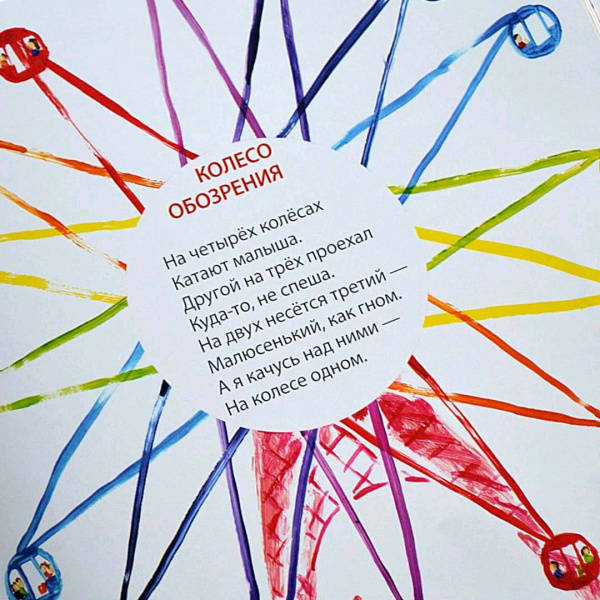 КОЛЕСО
ОБОЗРЕНИЯ
На четырёх колёсах
Катают малыша.
Другой на трёх проехал
Куда-то, не спеша.
На двух несётся третий —
Малюсенький, как гном.
А я качусь над ними —
На колесе одном.